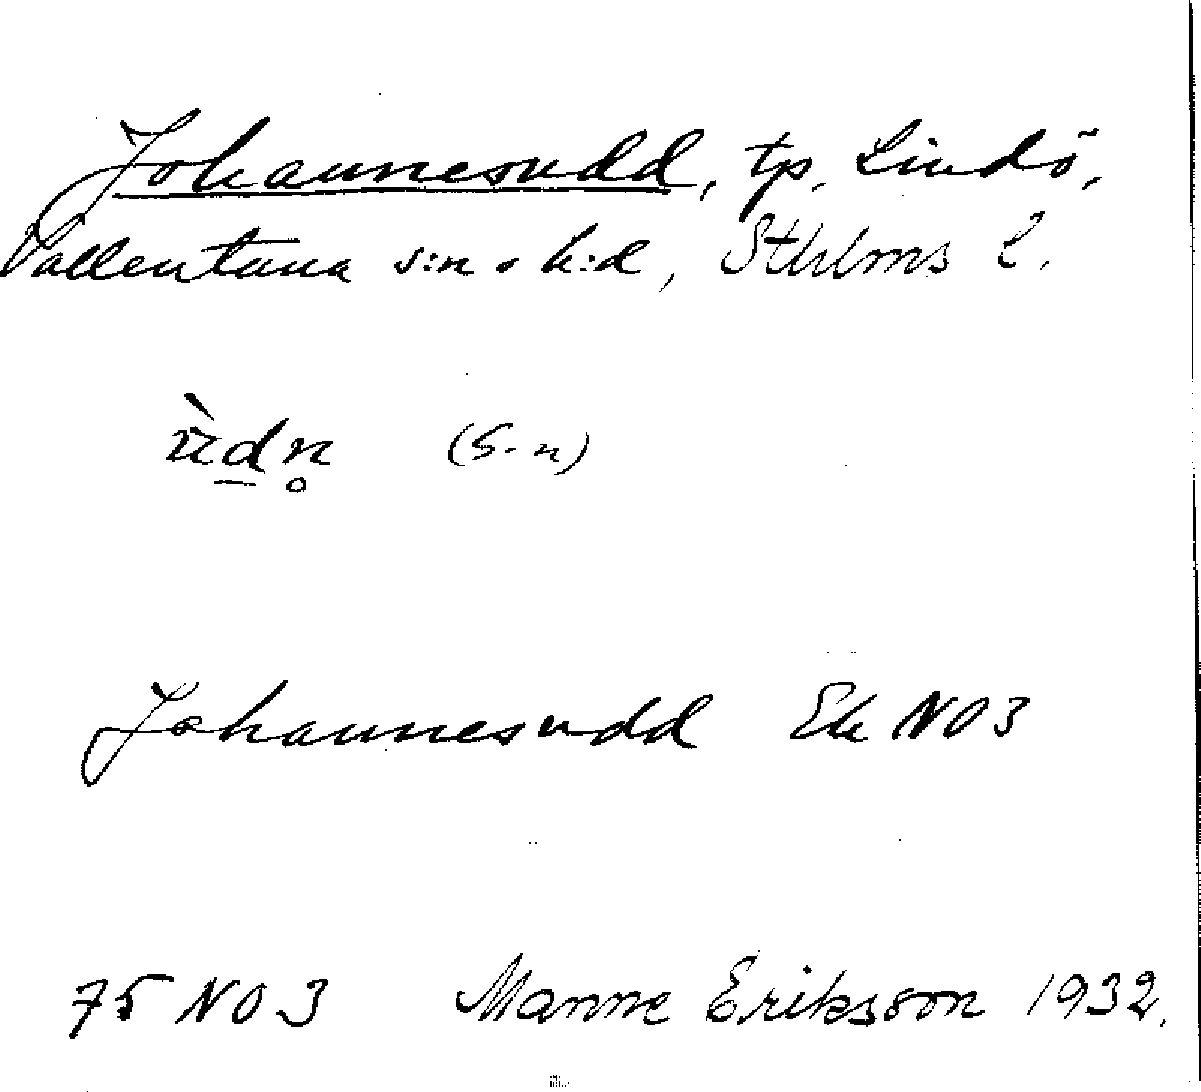 Johannesudd, tp. Lindö,
Vallentuna s:n o h:d, Sthlms l.
(S-n)
Johannesudd Ek NO3
75 NO3 Manne Eriksson 1932.